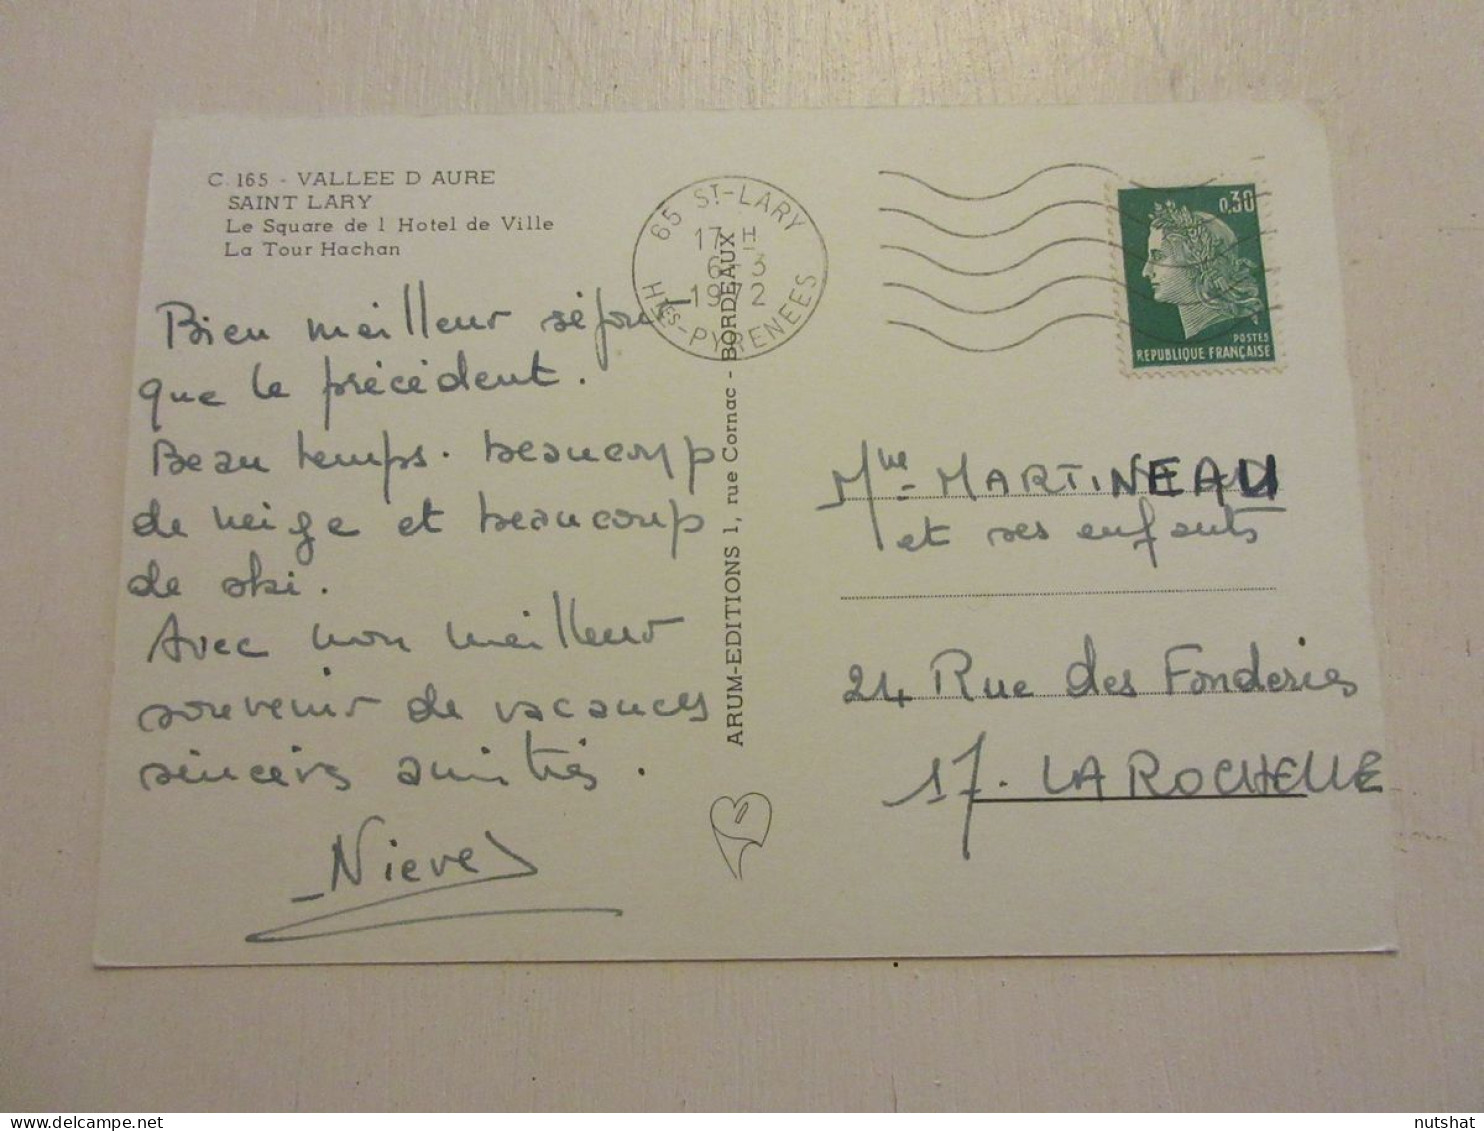 C. 165 - VALLEE D AURE
SAINT LARY
Le Square de l Hotel de Ville
La Tour Hachan
Bien meilleur séjour
que le précédent.
Beau temps. beaucoup
de neige et beaucoup
de ski.
Avec mon meilleur
souvenir de vacances
sincères amitiés.
Nieves
ARUM-EDITIONS 1, rue Cornac - BORDEAUX
65 ST-LARY
17 H
6 - 3
1972
HTES-PYRENEES
0,30
POSTES
REPUBLIQUE FRANÇAISE
Mme MARTINEAU
et ses enfants
24 Rue des Fonderies
17. LA ROCHELLE
nutshat